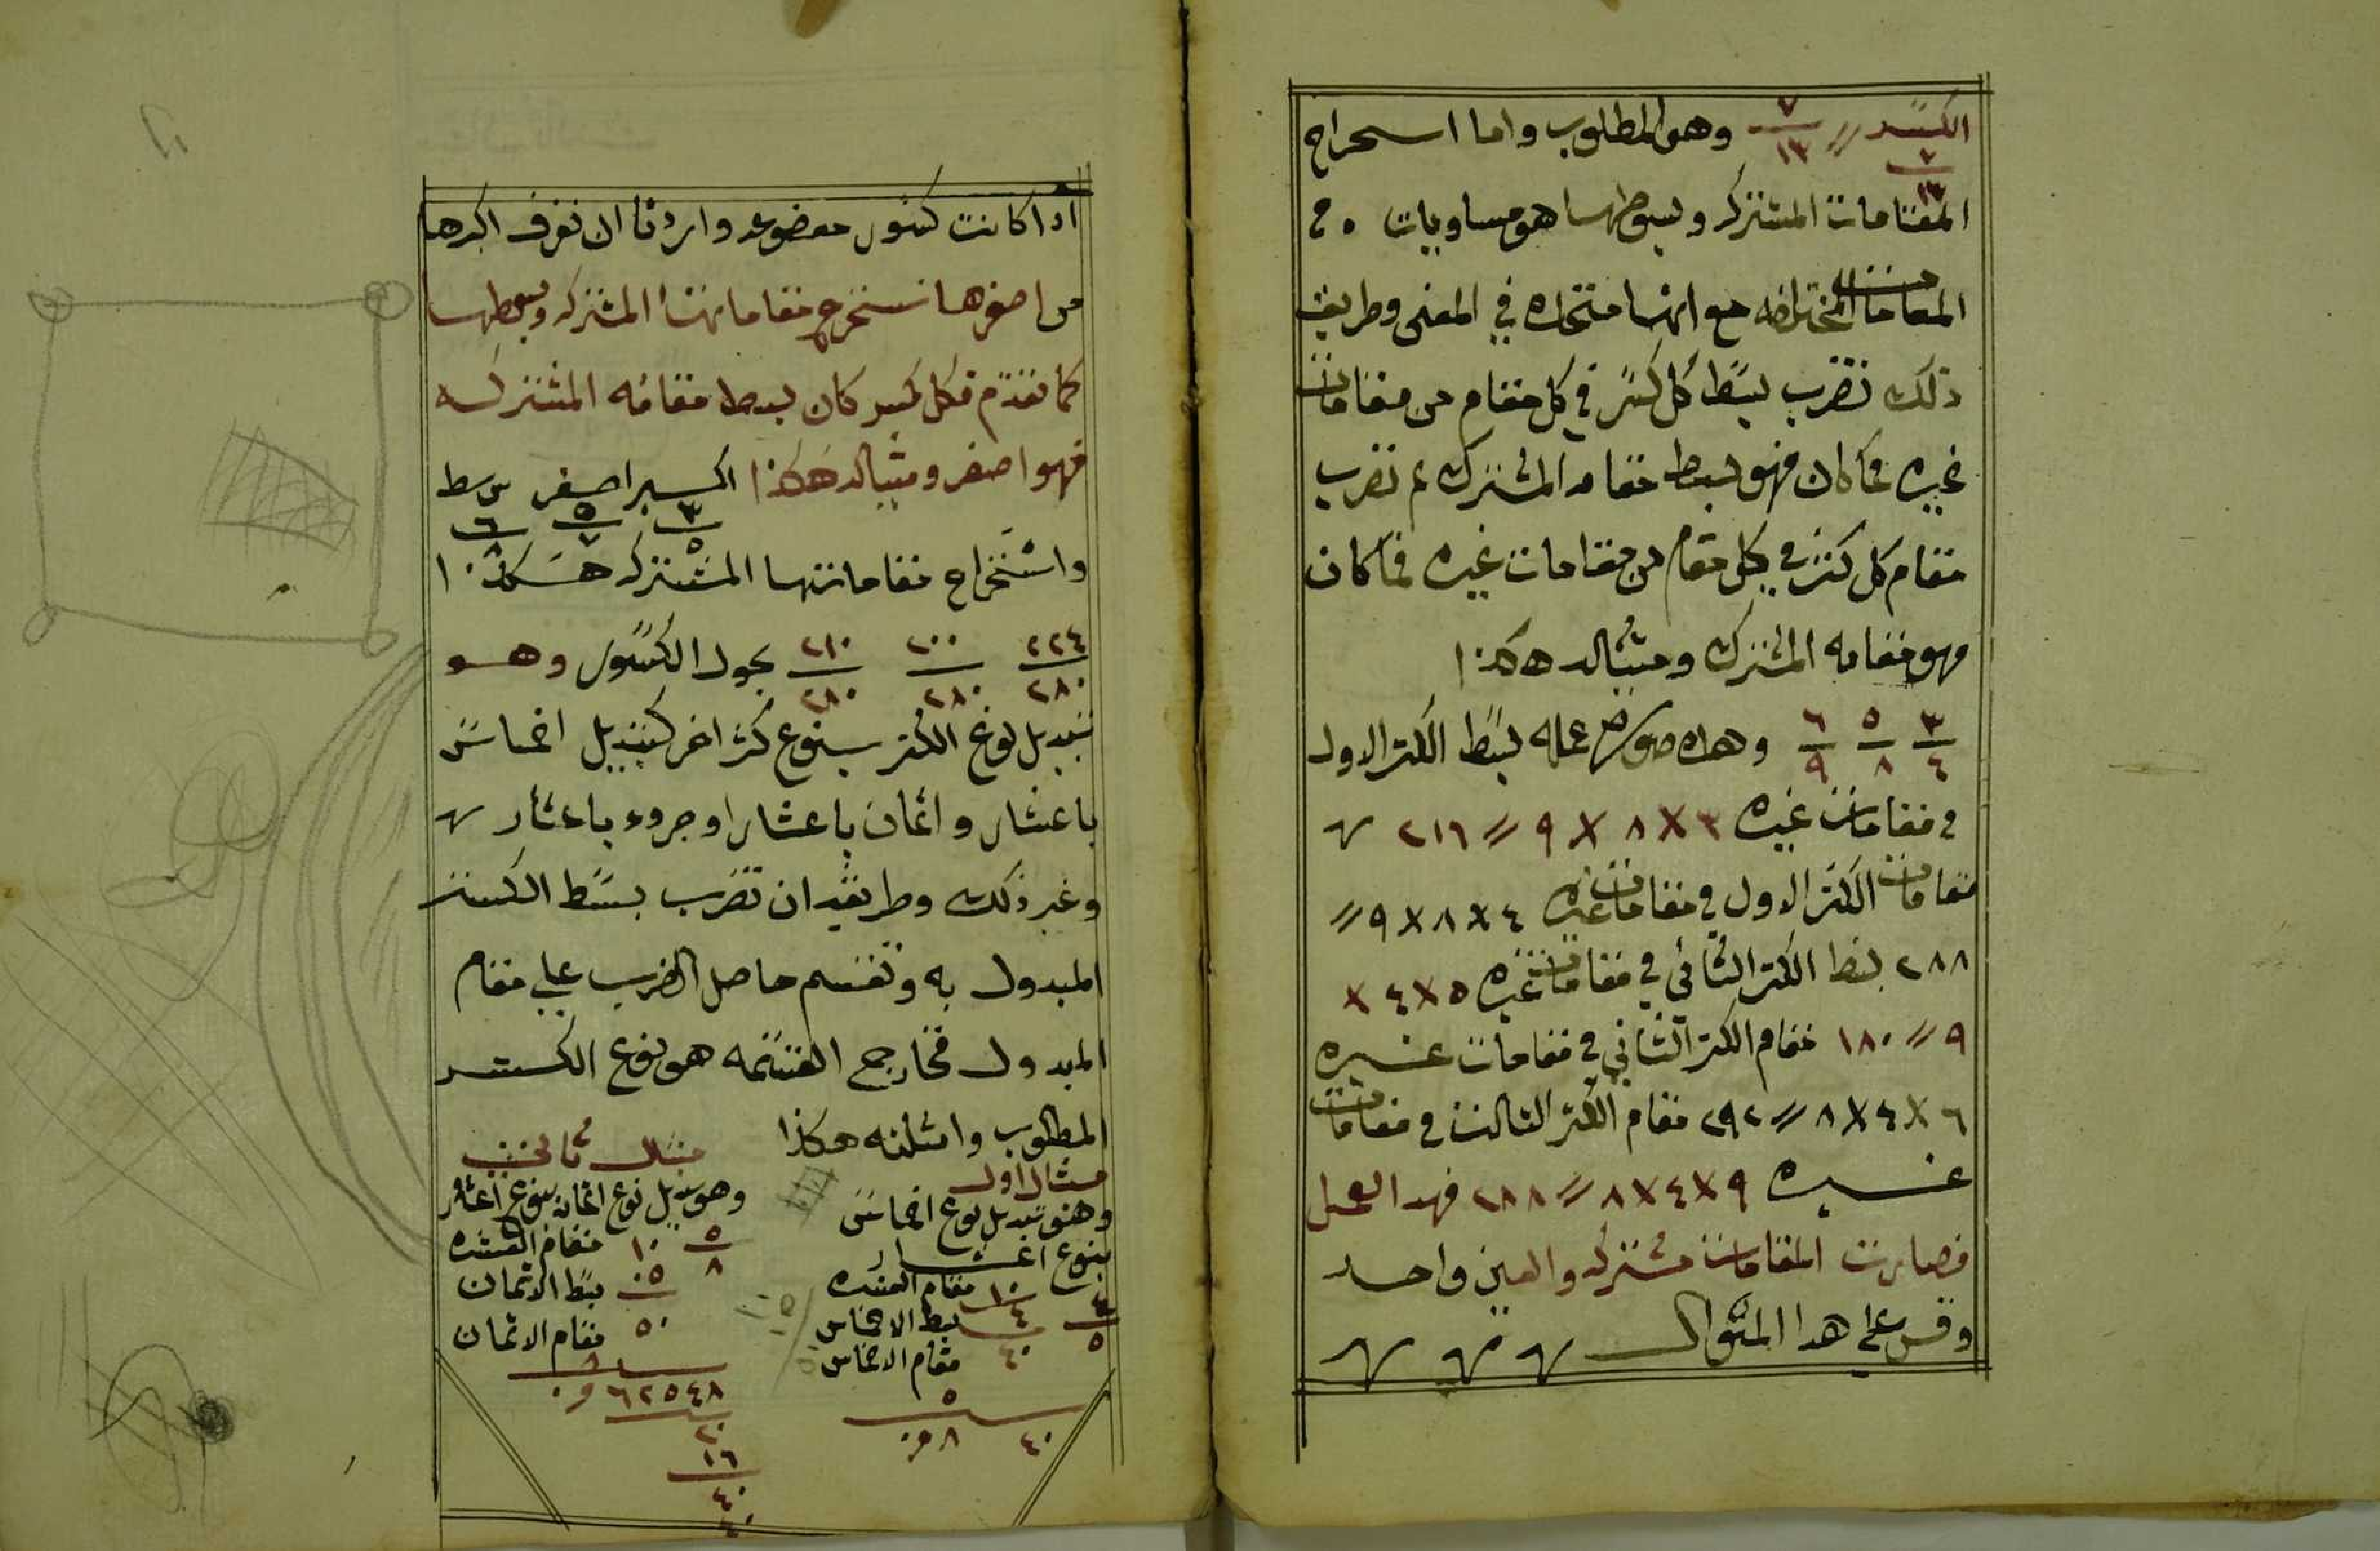 الكسر // ٧/١٣ وهو المطلوب واما اسحراج
٢/١٣
المقامات المشتركه وبسوطها هو مساويات ٥٠
المقامات المختلفه مع انها متحده في المعنى وطريق
ذلك نضرب بسط كل كسر في كل مقام من مقامات
غيره فما كان فهو بسط مقامه المشترك ثم نضرب
مقام كل كسر في كل مقام من مقامات غيره فما كان
فهو مقامه المشترك ومثاله هكذا
٣/٤ ٥/٨ ٦/٩ وهذه صورة عمله بسط الكسر الاول
في مقامات غيره ٣ X ٨ X ٩ // ٢١٦
مقامات الكسر الاول في مقامات غيره ٤ X ٨ X ٩ //
٢٨٨ بسط الكسر الثاني في مقامات غيره ٥ X ٤ X
٩ // ١٨٠ مقام الكسر الثاني في مقامات غيره
٦ X ٤ X ٨ // ٢٩٢ مقام الكسر الثالث في مقامات
غيره ٩ X ٤ X ٨ // ٢٨٨ فهدا العمل
فصارت المقامات مشتركه والعين واحد
وقس على هدا المنوال
اذا كانت كسور موضوعه واردنا ان نعرف اكبرها
من اصغرها نستخرج مقاماتها المشتركه وبسطها
كما تقدم فكل كسر كان بسط مقامه المشتركه
فهو اصغر ومثاله هكذا اكسر اصغر
٣/٥ ٥/٧ ٦/٨
واستخراج مقاماتها المشتركه هكذا
٢٢٤/٢٨٠ ٢٠٠/٢٨٠ ٢١٠/٢٨٠ الكسور وهو
تبديل نوع الكسر بنوع كسر اخر كتبديل اخماس
باعشار واثمان باعشار او جروء باعشار
وغير ذلك وطريقه ان تضرب بسط الكسر
المبدول به وتقسم حاصل الضرب على مقام
المبدول فخارج القسمه هو نوع الكسر
المطلوب وامثلته هكذا
مثال اول
وهو تبديل نوع اخماس
بنوع اعشار
٤/٥ ١٠ مقام العشره
٤ بسط الاخماس
٤٠ مقام الاخماس
٥
٤٠ ٨ و٠
مثال ثاني
وهو تبديل نوع اثمان بنوع اعشار
٥/٨ ١٠ مقام العشره
٠٥ بسط الاثمان
٥٠ مقام الاثمان
٨
٦٢٥٤٨ و٠
٢٠
١٦
٤٠
٤٠